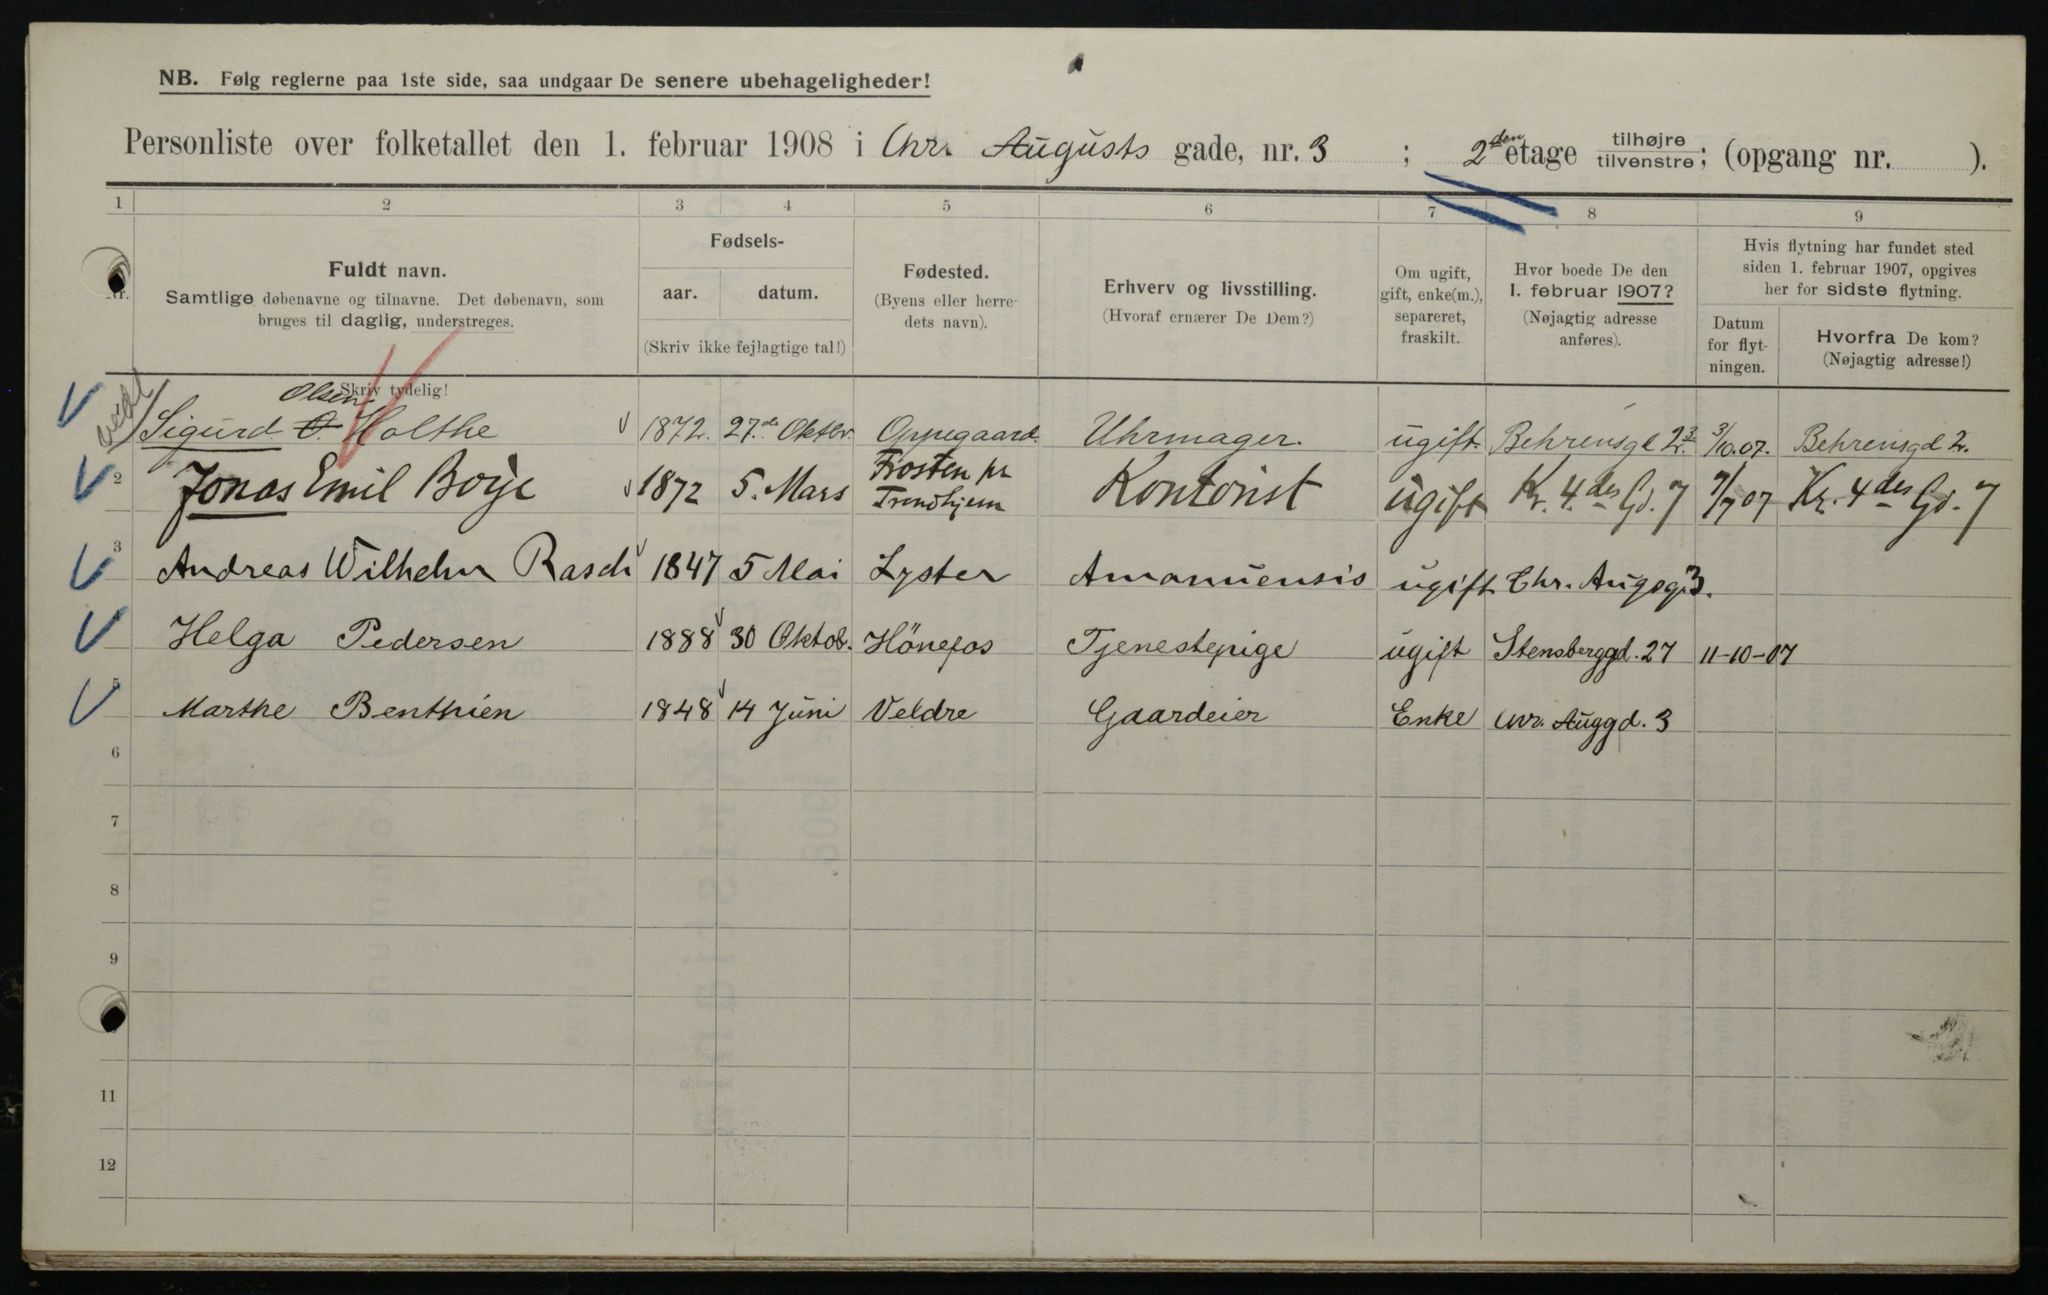 NB. Følg reglerne paa 1ste side, saa undgaar De senere ubehageligheder!
Personliste over folketallet den 1. februar 1908 i Chr. Augusts gade, nr. 3 ; 2den etage tilhøjre tilvenstre; (opgang nr. ).
1 2 3 4 5 6 7 8 9
Nr.
Fuldt navn.
Samtlige døbenavne og tilnavne. Det døbenavn, som
bruges til daglig, understreges.
Skriv tydelig!
Fødsels-
aar. datum.
(Skriv ikke fejlagtige tal!)
Fødested.
(Byens eller herre-
dets navn).
Erhverv og livsstilling.
(Hvoraf ernærer De Dem?)
Om ugift,
gift, enke(m.),
separeret,
fraskilt.
Hvor boede De den
1. februar 1907?
(Nøjagtig adresse
anføres).
Hvis flytning har fundet sted
siden 1. februar 1907, opgives
her for sidste flytning.
Datum
for flyt-
ningen.
Hvorfra De kom?
(Nøjagtig adresse!)
Olsen
Sigurd O. Holthe 1872. 27.de Oktbr. Oppegaard. Uhrmager. ugift. Behrensgd 2.3. 3/10.07. Behrensgd 2.
2 Jonas Emil Boye 1872 5. Mars Frosten pr Trondhjem Kontorist ugift Kr. 4.des Gd. 7 7/7 07 Kr. 4des Gd. 7
3 Andreas Wilhelm Rasch 1847 5 Mai Lyster Amanuensis ugift Chr. Augsg. 3.
Helga Pedersen 1888 30 Oktob. Hönefos Tjenestepige ugift Stensberggd. 27 11-10-07
5 Marthe Benthien 1848 14 Juni Veldre Gaardeier Enke Chr. Auggd. 3
6
7
8
9
11
12